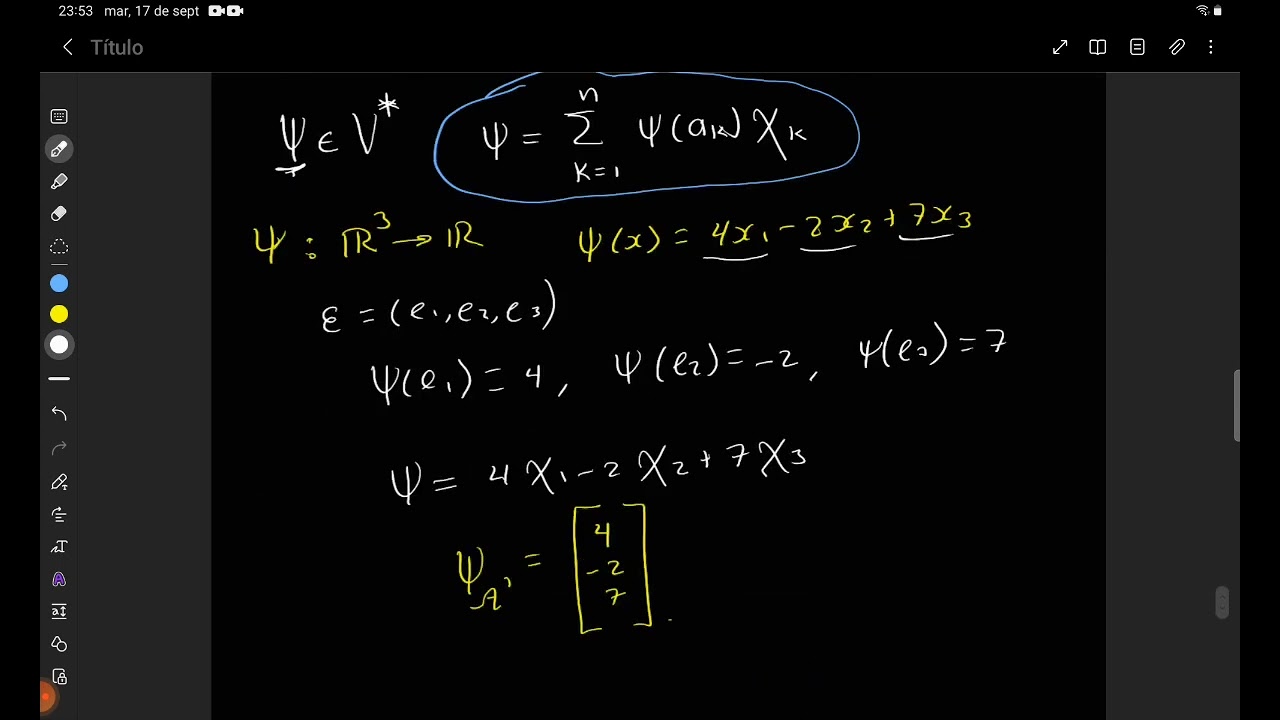 23:53 mar, 17 de sept
Título
Ψ ∈ V* Ψ = ∑ₖ₌₁ⁿ Ψ(aₖ) χₖ
Ψ : ℝ³ → ℝ Ψ(x) = 4x₁ - 2x₂ + 7x₃
ε = (e₁, e₂, e₃)
Ψ(e₁) = 4, Ψ(e₂) = -2, Ψ(e₃) = 7
Ψ = 4χ₁ - 2χ₂ + 7χ₃
Ψ_𝒜' = [4
-2
7].